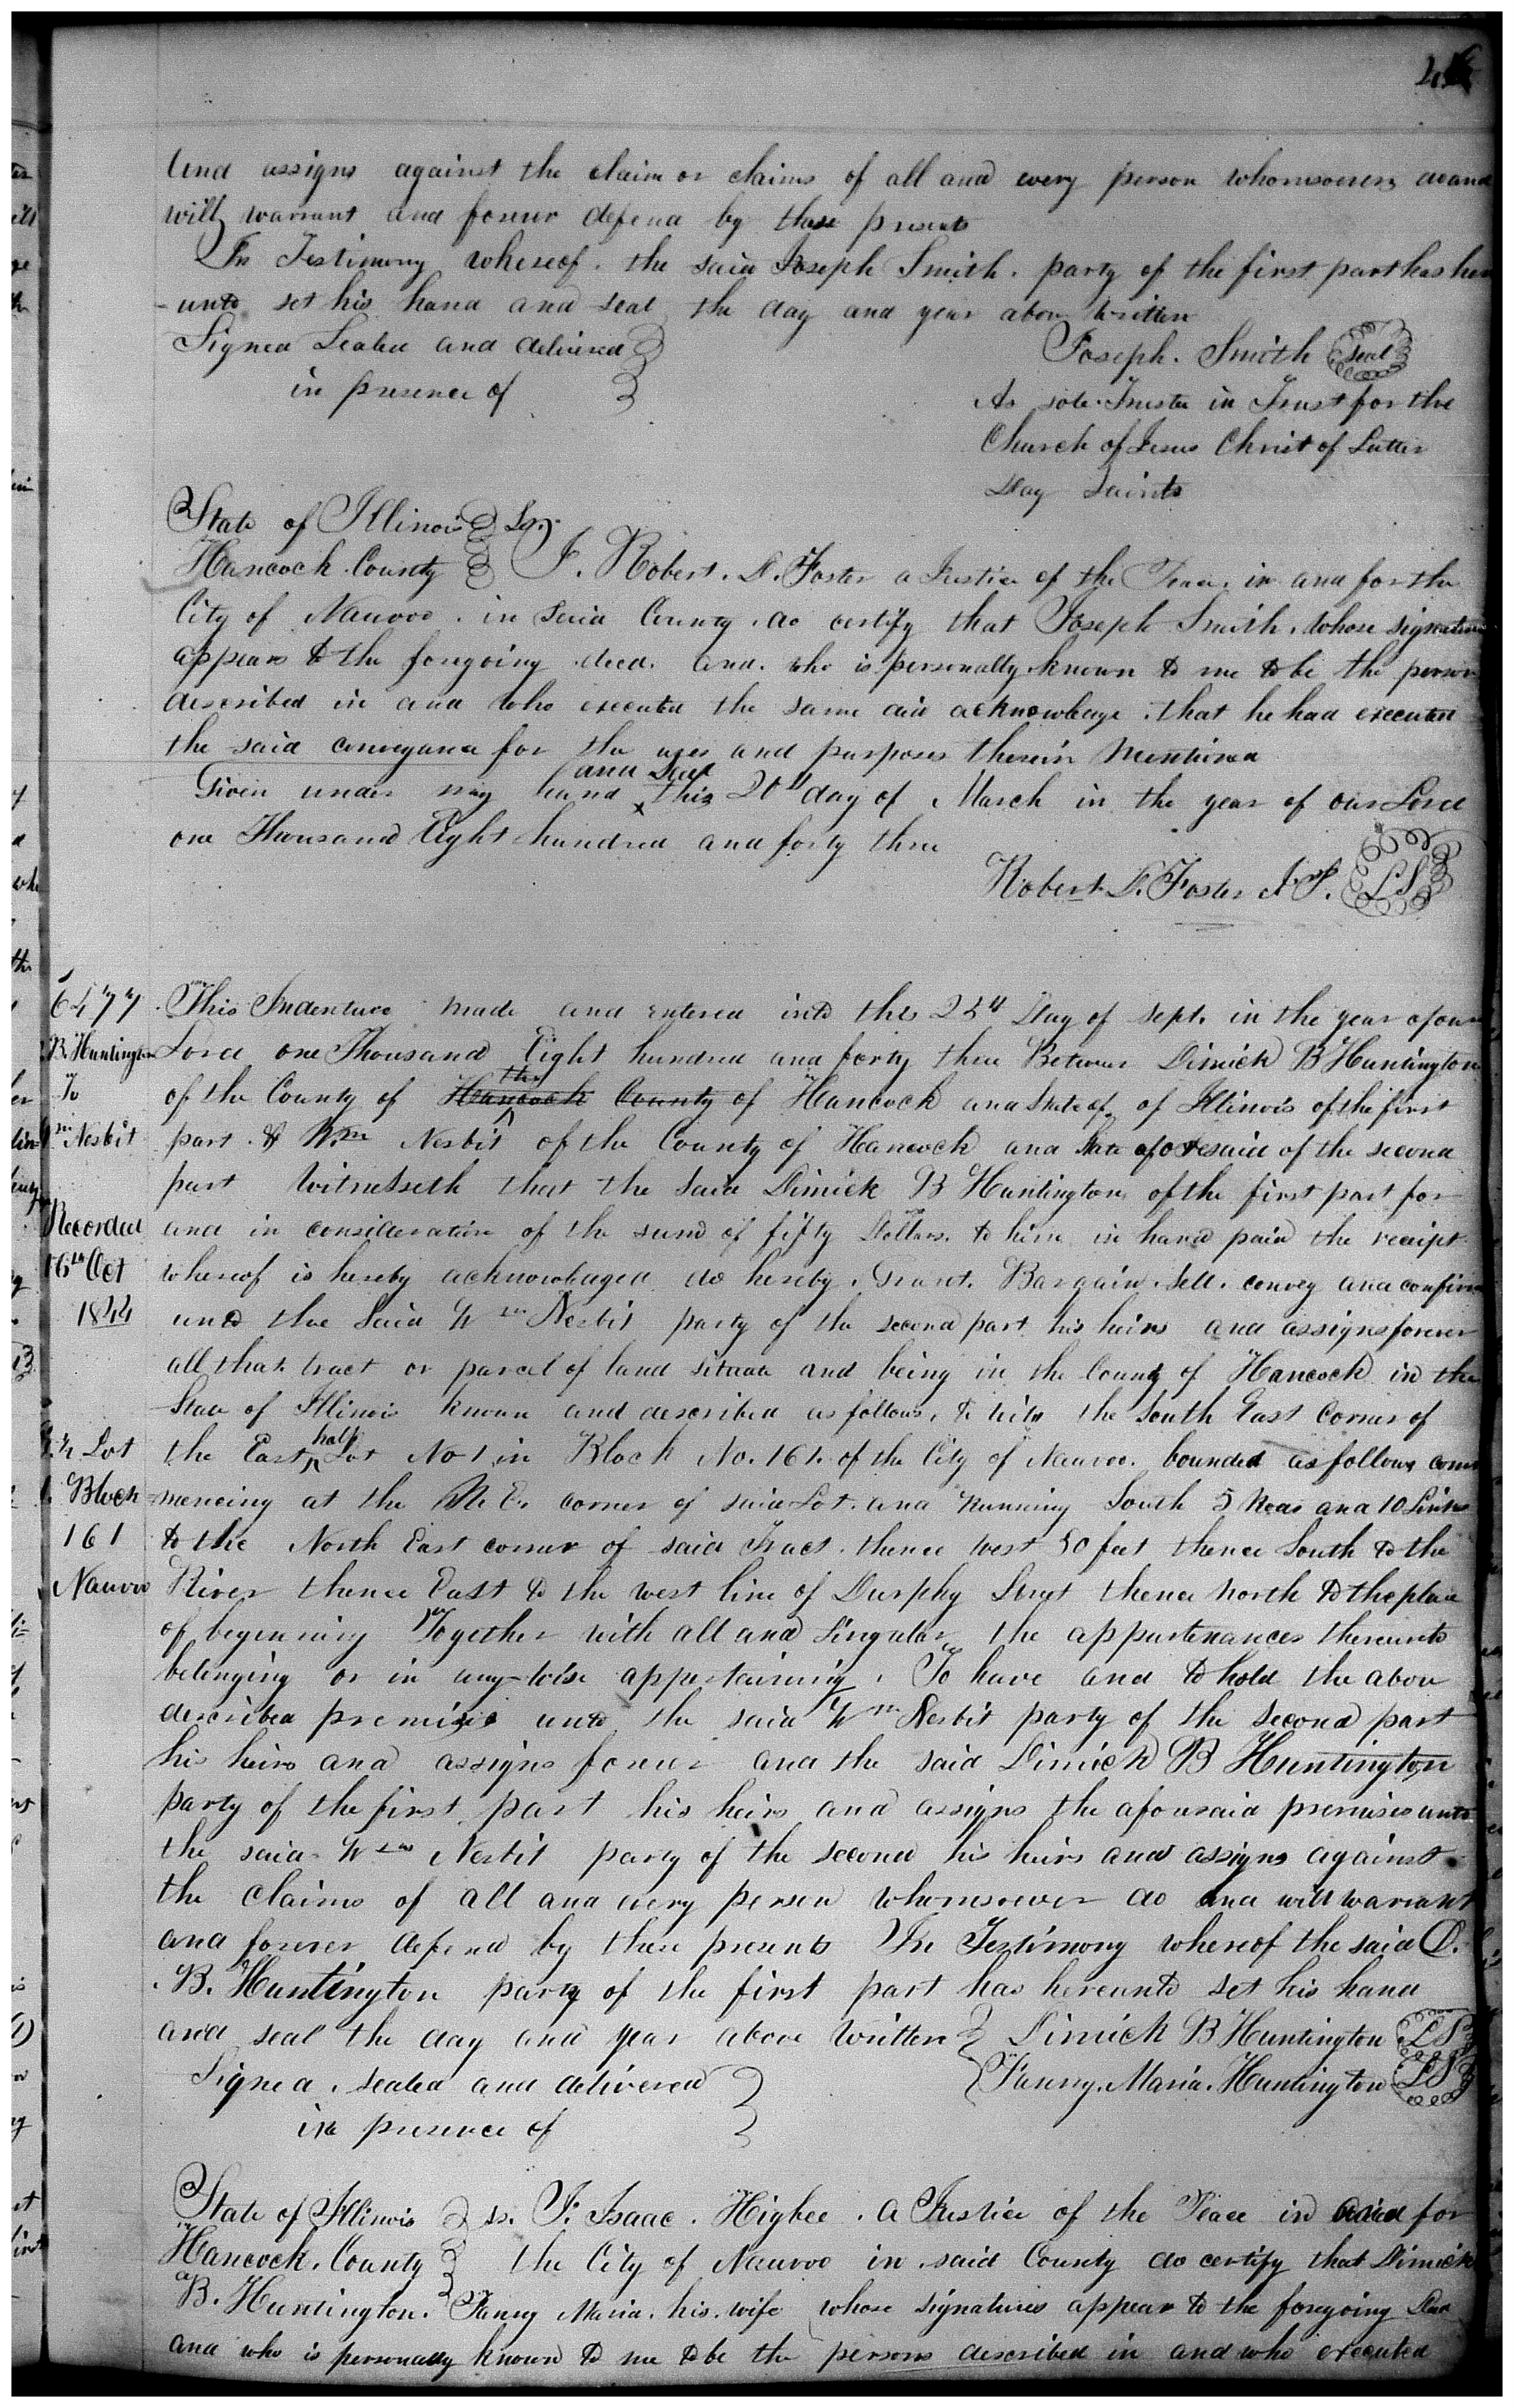 and assigns against the claim or claims of all and every person whomsoever do and
will warrant and forever defend by these presents
In Testimony whereof. the said Joseph Smith. party of the first part has here
-unto set his hand and seal the day and year above written
Signed Sealed and delivered
in presence of
Joseph. Smith Seal
As sole Trustee in Trust for the
Church of Jesus Christ of Latter
Day Saints
State of Illinois Ss.
Hancock County I. Robert. D. Foster a Justice of the Peace. in and for the
City of Nauvoo. in said County. do certify that Joseph Smith. whose signature
appears to the foregoing deed. and. who is personally known to me to be the person
described in and who executed the same did acknowledge. that he had executed
the said conveyance for the uses and purposes therein mentioned
Given under my hand and Seal this 20th day of March in the year of our Lord
one Thousand Eight hundred and forty three
Robert D. Foster J.P. LS
6477
B. Huntington
To
Wm Nesbit
Recorded
16th Oct
1844
Lot
Block
161
Nauvoo
This Indenture made and entered into this 25th Day of Sept. in the year of our
Lord one Thousand Eight hundred and forty three Between Dimick B Huntington
of the County of Hancock the County of Hancock and State of. of Illinois of the first
part. & Wm Nesbit of the County of Hancock and State aforesaid of the second
part Witnesseth that the said Dimick B Huntington of the first part for
and in consideration of the sum of fifty Dollars. to him in hand paid the receipt
whereof is hereby acknowledged do hereby. Grant. Bargain. Sell. convey and confirm
unto the said Wm Nesbit party of the second part his heirs and assigns forever
all that tract or parcel of land situate and being in the County of Hancock in the
State of Illinois known and described as follows, to wit the South East Corner of
the East half Lot No 1 in Block No. 161. of the City of Nauvoo. bounded as follows com
mencing at the N E. corner of said Lot. and running South 5 Rods and 10 Links
to the North East corner of said Tract. thence West 50 feet thence South to the
River thence East to the west line of Durphy Street thence North to the place
of beginning Together with all and singular the appurtenances thereunto
belonging or in any-wise appertaining. To have and to hold the above
described premises unto the said Wm Nesbit party of the second part
his heirs and assigns forever and the said Dimick B Huntington
party of the first part his heirs and assigns the aforesaid premises unto
the said Wm Nesbit party of the second his heirs and assigns against
the claims of all and every person whomsoever do and will warrant
and forever defend by these presents In Testimony whereof the said D.
B. Huntington party of the first part has hereunto set his hand
and seal the day and year above written Dimick B Huntington LS
Signed. sealed and delivered Fanny. Maria. Huntington LS
in presence of
State of Illinois ss. I. Isaac. Higbee. a Justice of the Peace in and for
Hancock. County the City of Nauvoo in said County do certify that Dimick
B. Huntington. Fanny Maria. his. wife whose signatures appear to the foregoing Deed
and who is personally known to me to be the persons described in and who executed